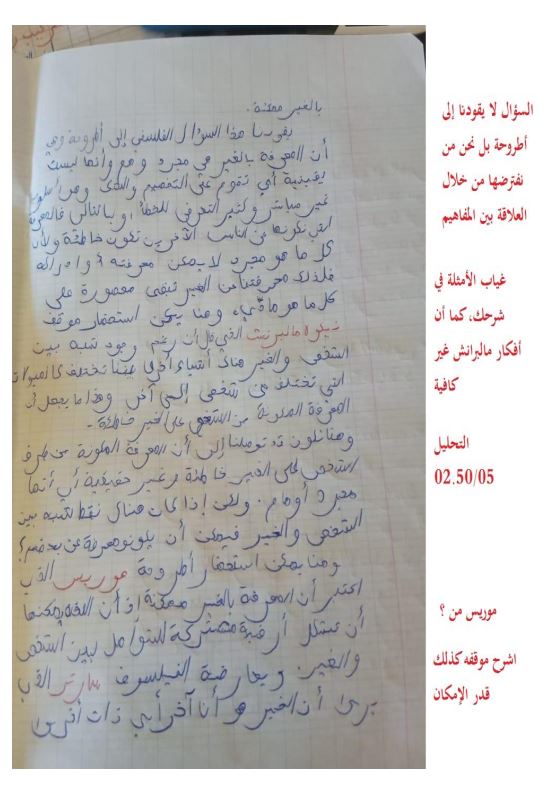 بالغير ممكنة.
يقودنا هذا السؤال الفلسفي إلى أطروحة وهي
أن المعرفة بالغير هي مجرد وهم وأنها ليست
يقينية أي تقوم على التعميم والظن وهي
غير مباشر وكثير التعرض للخطأ، وبالتالي فالمعرفة
التي نكونها عن الناس الآخرين تكون خاطئة ولأن
كل ما هو مجرد لا يمكن معرفته أو إدراكه
فلذلك معرفتنا عن الغير تبقى مقصورة على
كل ما هو مادي، وهنا يمكن استحضار موقف
نيكولا مالبرنش الذي قال أن رغم وجود شبه بين
الشخص والغير هناك أشياء أخرى بيننا تختلف كالميولات
التي تختلف من شخص إلى آخر وهذا ما يجعل أن
المعرفة المكونة من الشخص على الغير خاطئة.
وهنا نكون قد توصلنا إلى أن المعرفة المكونة من طرف
الشخص على الغير خاطئة و غير حقيقية أي أنها
مجرد أوهام. ولكن إذا كان هناك نقط تشبه بين
الشخص والغير فيمكن أن يكونو معرفة عن بعضهم؟
وهنا يمكن استحضار أطروحة موريس الذي
اعتبر أن المعرفة بالغير ممكنة اذ أن اللغة يمكنها
أن تشكل أرضية مشتركة للتواصل بين الشخص
والغير. ويعارضه الفيلسوف سارتر الذي
يرى أن الغير هو أنا آخر أي ذات أخرى
السؤال لا يقودنا إلى
أطروحة بل نحن من
نفترضها من خلال
العلاقة بين المفاهيم
غياب الأمثلة في
شرحك، كما أن
أفكار مالبرانش غير
كافية
التحليل
02.50/05
موريس من ؟
اشرح موقفه كذلك
قدر الإمكان